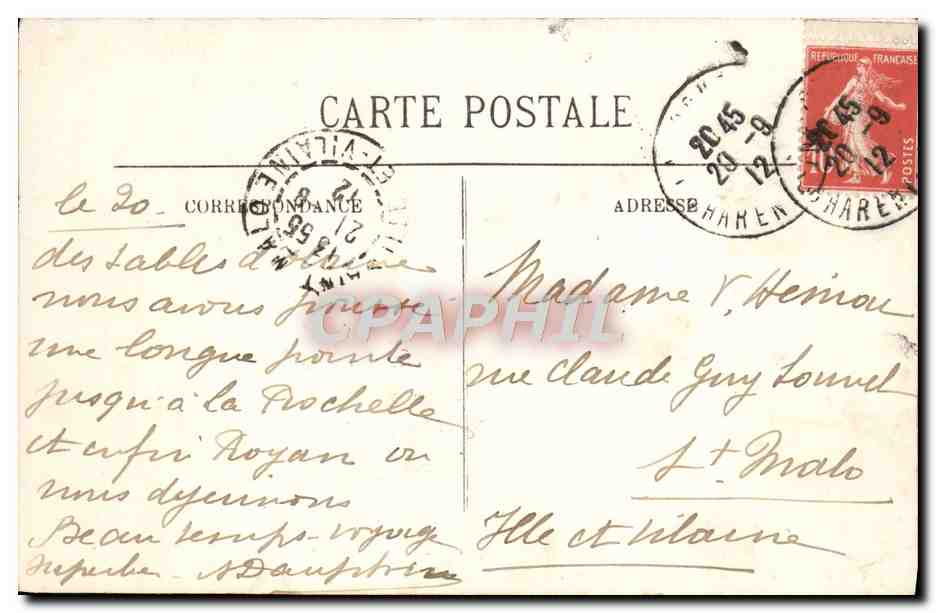 CARTE POSTALE
CORRESPONDANCE
ADRESSE
REPUBLIQUE FRANÇAISE
POSTES
10
20 45
20 -9
12
20 45
20 -9
12
HAREN
HAREN
ET-VILAINE
13 55
21 -9
12
le 20 -
des Sables d'olonne
nous avons pousse
une longue pointe
jusqu'à la Rochelle
et enfin Royan ou
nous dejeunons
Beau temps - voyage
superbe - ADauphin
Madame V. Hemon
rue Claude Guy Louvel
St Malo
Ille et Vilaine
CPAPHIL